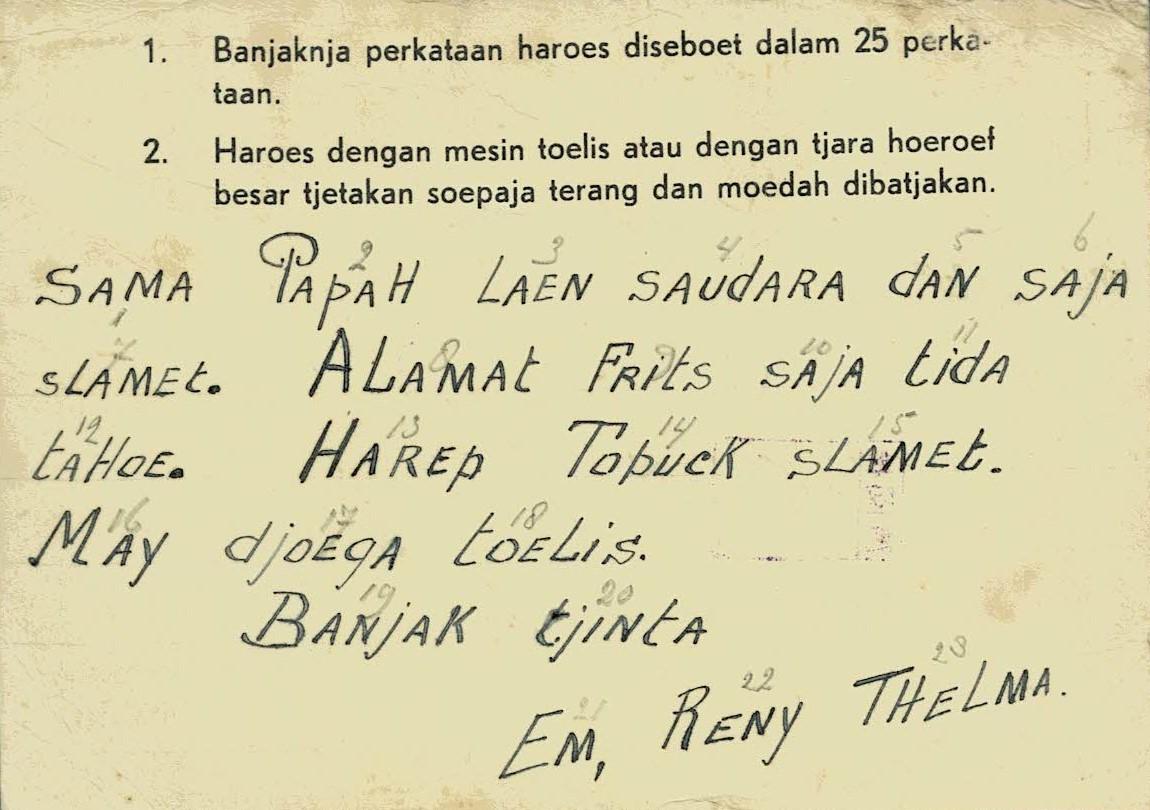 1. Banjaknja perkataan haroes diseboet dalam 25 perka-
taan.
2. Haroes dengan mesin toelis atau dengan tjara hoeroef
besar tjetakan soepaja terang dan moedah dibatjakan.
2 3 4 5 6
SAMA PAPAH LAEN SAUdARA dAN SAJA
1 7 8 9 10 11
SLAMEt. ALAMAt FRitS SAJA tidA
12 13 14 15
tAHOE. HAREP Topuck SLAMEt.
16 17 18
MAY djOEGA tOELiS.
19 20
BANjAK tjiNtA
21 22 23
EM, RENY THELMA.